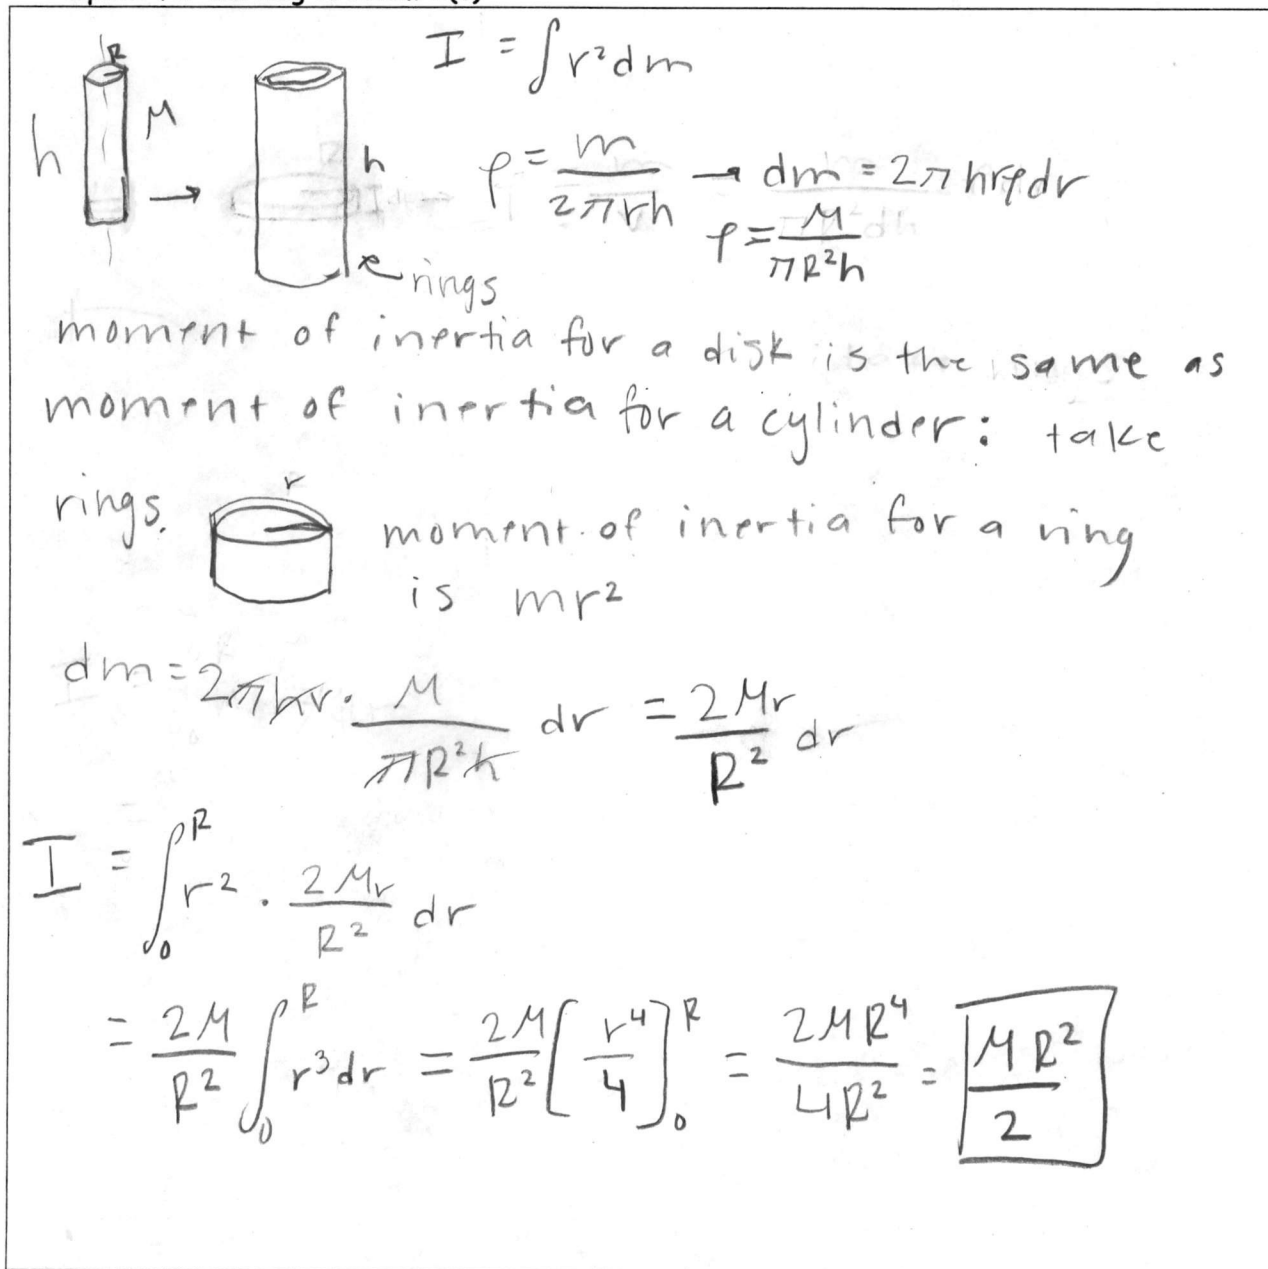 R
h
M
h
rings
I = ∫r²dm
ρ = m/(2πrh) → dm = 2πhrρdr
ρ = M/(πR²h)
moment of inertia for a disk is the same as
moment of inertia for a cylinder: take
rings.
r
moment of inertia for a ring
is mr²
dm = 2πhr · M/(πR²h) dr = 2Mr/R² dr
I = ∫₀ᴿ r² · 2Mr/R² dr
= 2M/R² ∫₀ᴿ r³dr = 2M/R² [r⁴/4]₀ᴿ = 2MR⁴/4R² = MR²/2